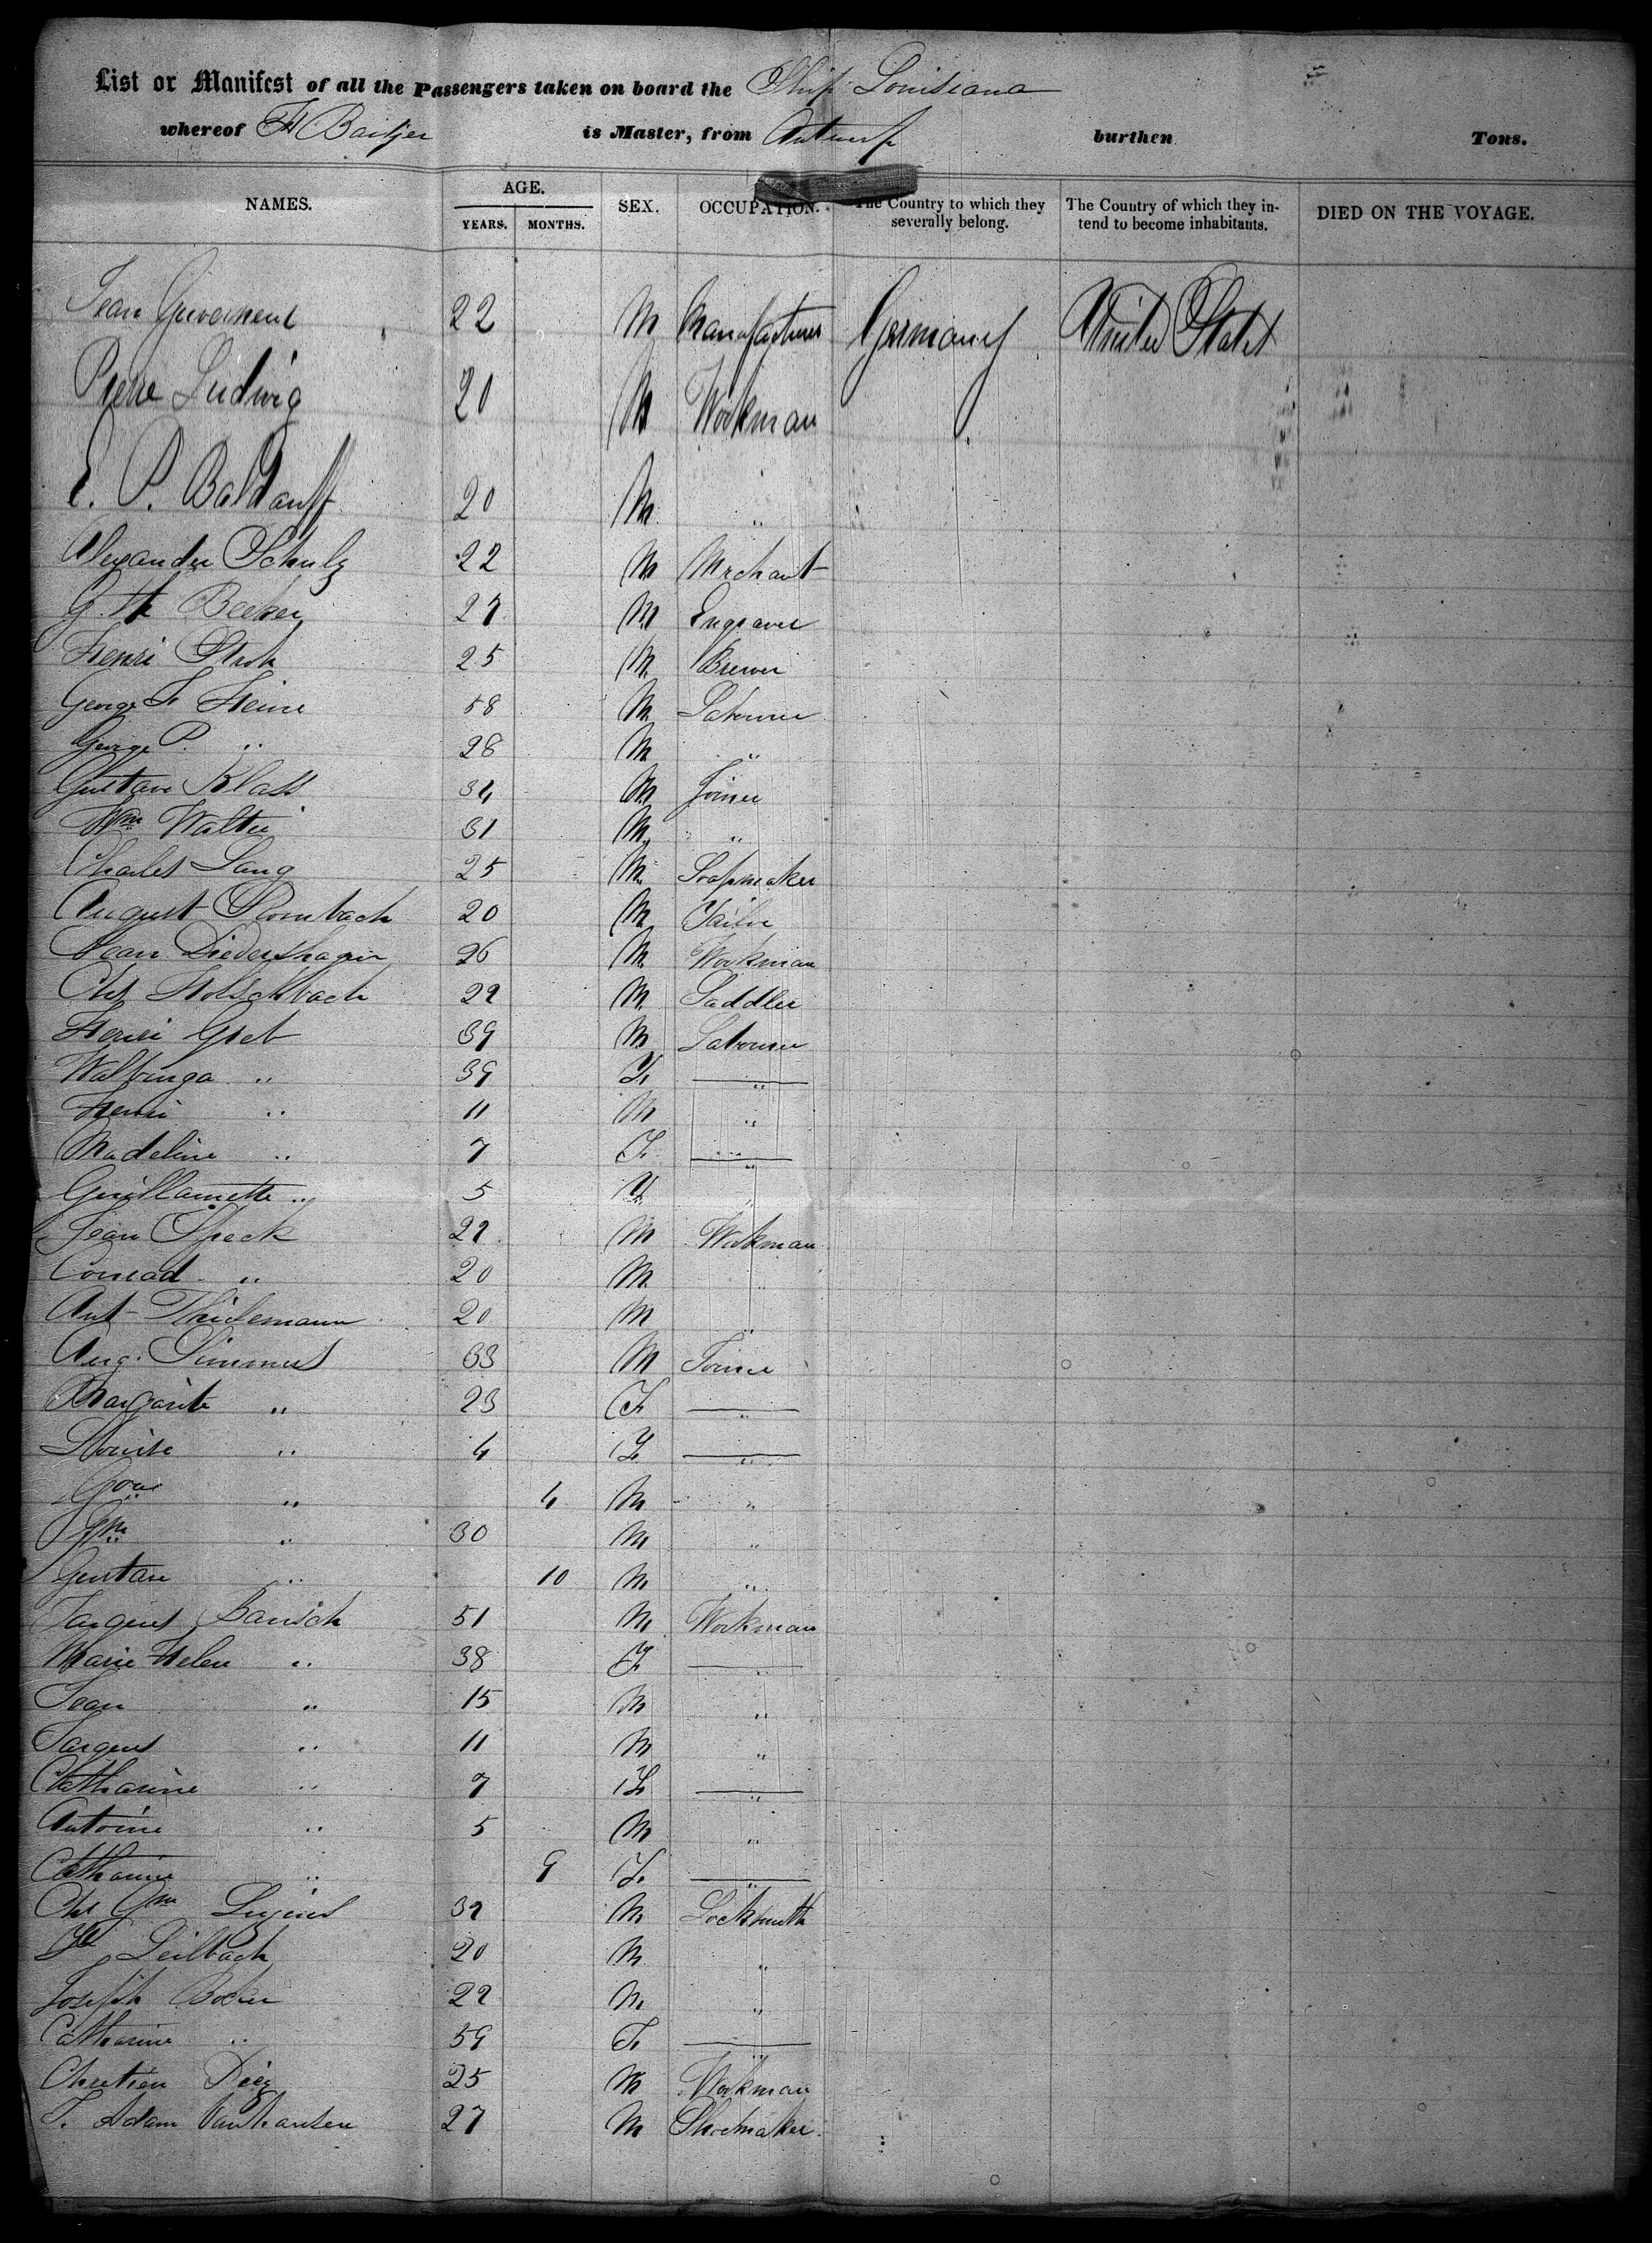 List or Manifest of all the Passengers taken on board the Ship Louisiana
whereof H Baitjer is Master, from Antwerp burthen Tons.
NAMES. AGE. YEARS. MONTHS. SEX. OCCUPATION. The Country to which they severally belong. The Country of which they intend to become inhabitants. DIED ON THE VOYAGE.
Jean 22 M Manufacturer Germany United States
Pierre Ludwig 20 M Workman
E. P. Baldauff 20 M "
Alexander Schulz 22 M Merchant
G. H Becker 27 M Engraver
Henri Stroh 25 M Brewer
George F Heine 58 M Labourer
George P. " 28 M "
Gustave Klass 34 M Joiner
Wm Walter 31 M "
Charles Lang 25 M Soapmaker
August Rombach 20 M Tailor
Jean Diedershagen 26 M Workman
Chs Holschbach 22 M Saddler
Henri Greb 39 M Labourer
Walburga " 39 F "
Henri " 11 M "
Madeline " 7 F "
Guillamette " 5 F "
Jean Speck 27 M Workman
Conrad " 20 M "
Ant Thielemann 20 M "
Aug. Simmers 33 M Joiner
Margarite " 23 F "
Louise " 4 F "
" 4 M "
Gm " 30 M "
Gustav " 10 M "
Jaques Bausch 51 M Workman
Marie Helen " 38 F "
Jean " 15 M "
Jaques " 11 M "
Catharine " 7 F "
Antoine " 5 M "
Catharine " 9 F "
Chs Gm 32 M Locksmith
Leilbach 20 M "
Joseph 22 M "
Catharine " 59 F "
Chretien Diez 25 M Workman
J. Adam Vanhausen 27 M Shoemaker